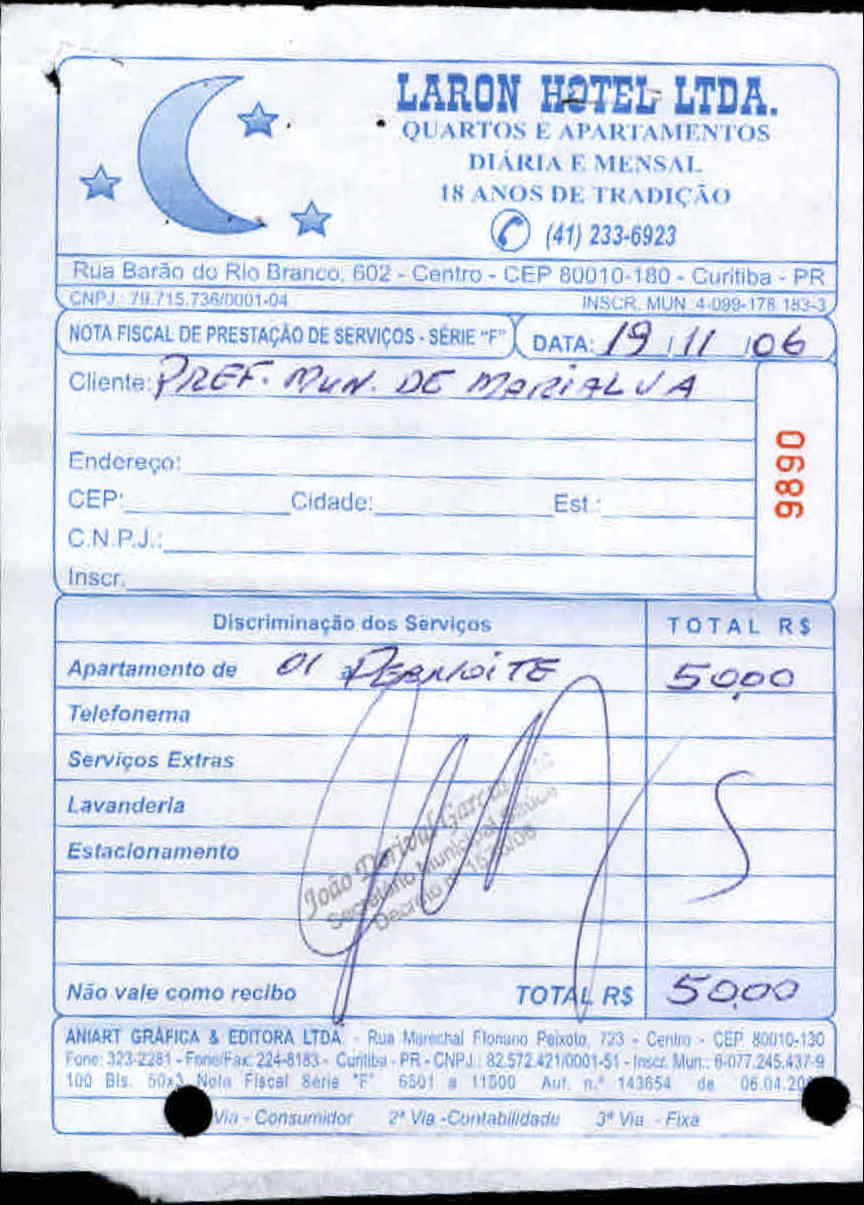 LARON HOTEL LTDA.
QUARTOS E APARTAMENTOS
DIÁRIA E MENSAL
18 ANOS DE TRADIÇÃO
(41) 233-6923
Rua Barão do Rio Branco, 602 - Centro - CEP 80010-180 - Curitiba - PR
CNPJ.: 79.715.736/0001-04 INSCR. MUN. 4-099-178.183-3
NOTA FISCAL DE PRESTAÇÃO DE SERVIÇOS - SÉRIE "F" DATA: 19 / 11 / 06
Cliente: PREF. MUN. DE MARIALVA
9890
Endereço:
CEP: Cidade: Est.:
C.N.P.J.:
Inscr.
Discriminação dos Serviços TOTAL R$
Apartamento de 01 PERNOITE 50,00
Telefonema
Serviços Extras
Lavanderia
Estacionamento
João Dorival Garcia
Secretário Municipal Saúde
Decreto nº
Não vale como recibo TOTAL R$ 50,00
ANIART GRÁFICA & EDITORA LTDA - Rua Marechal Floriano Peixoto, 723 - Centro - CEP 80010-130
Fone: 323-2281 - Fone/Fax: 224-8183 - Curitiba - PR - CNPJ.: 82.572.421/0001-51 - Inscr. Mun.: 6-077.245.437-9
100 Bls. 50x3 Nota Fiscal Série "F" 6501 a 11500 Aut. n.º 143654 de 06.04.20
Via - Consumidor 2ª Via - Contabilidade 3ª Via - Fixa